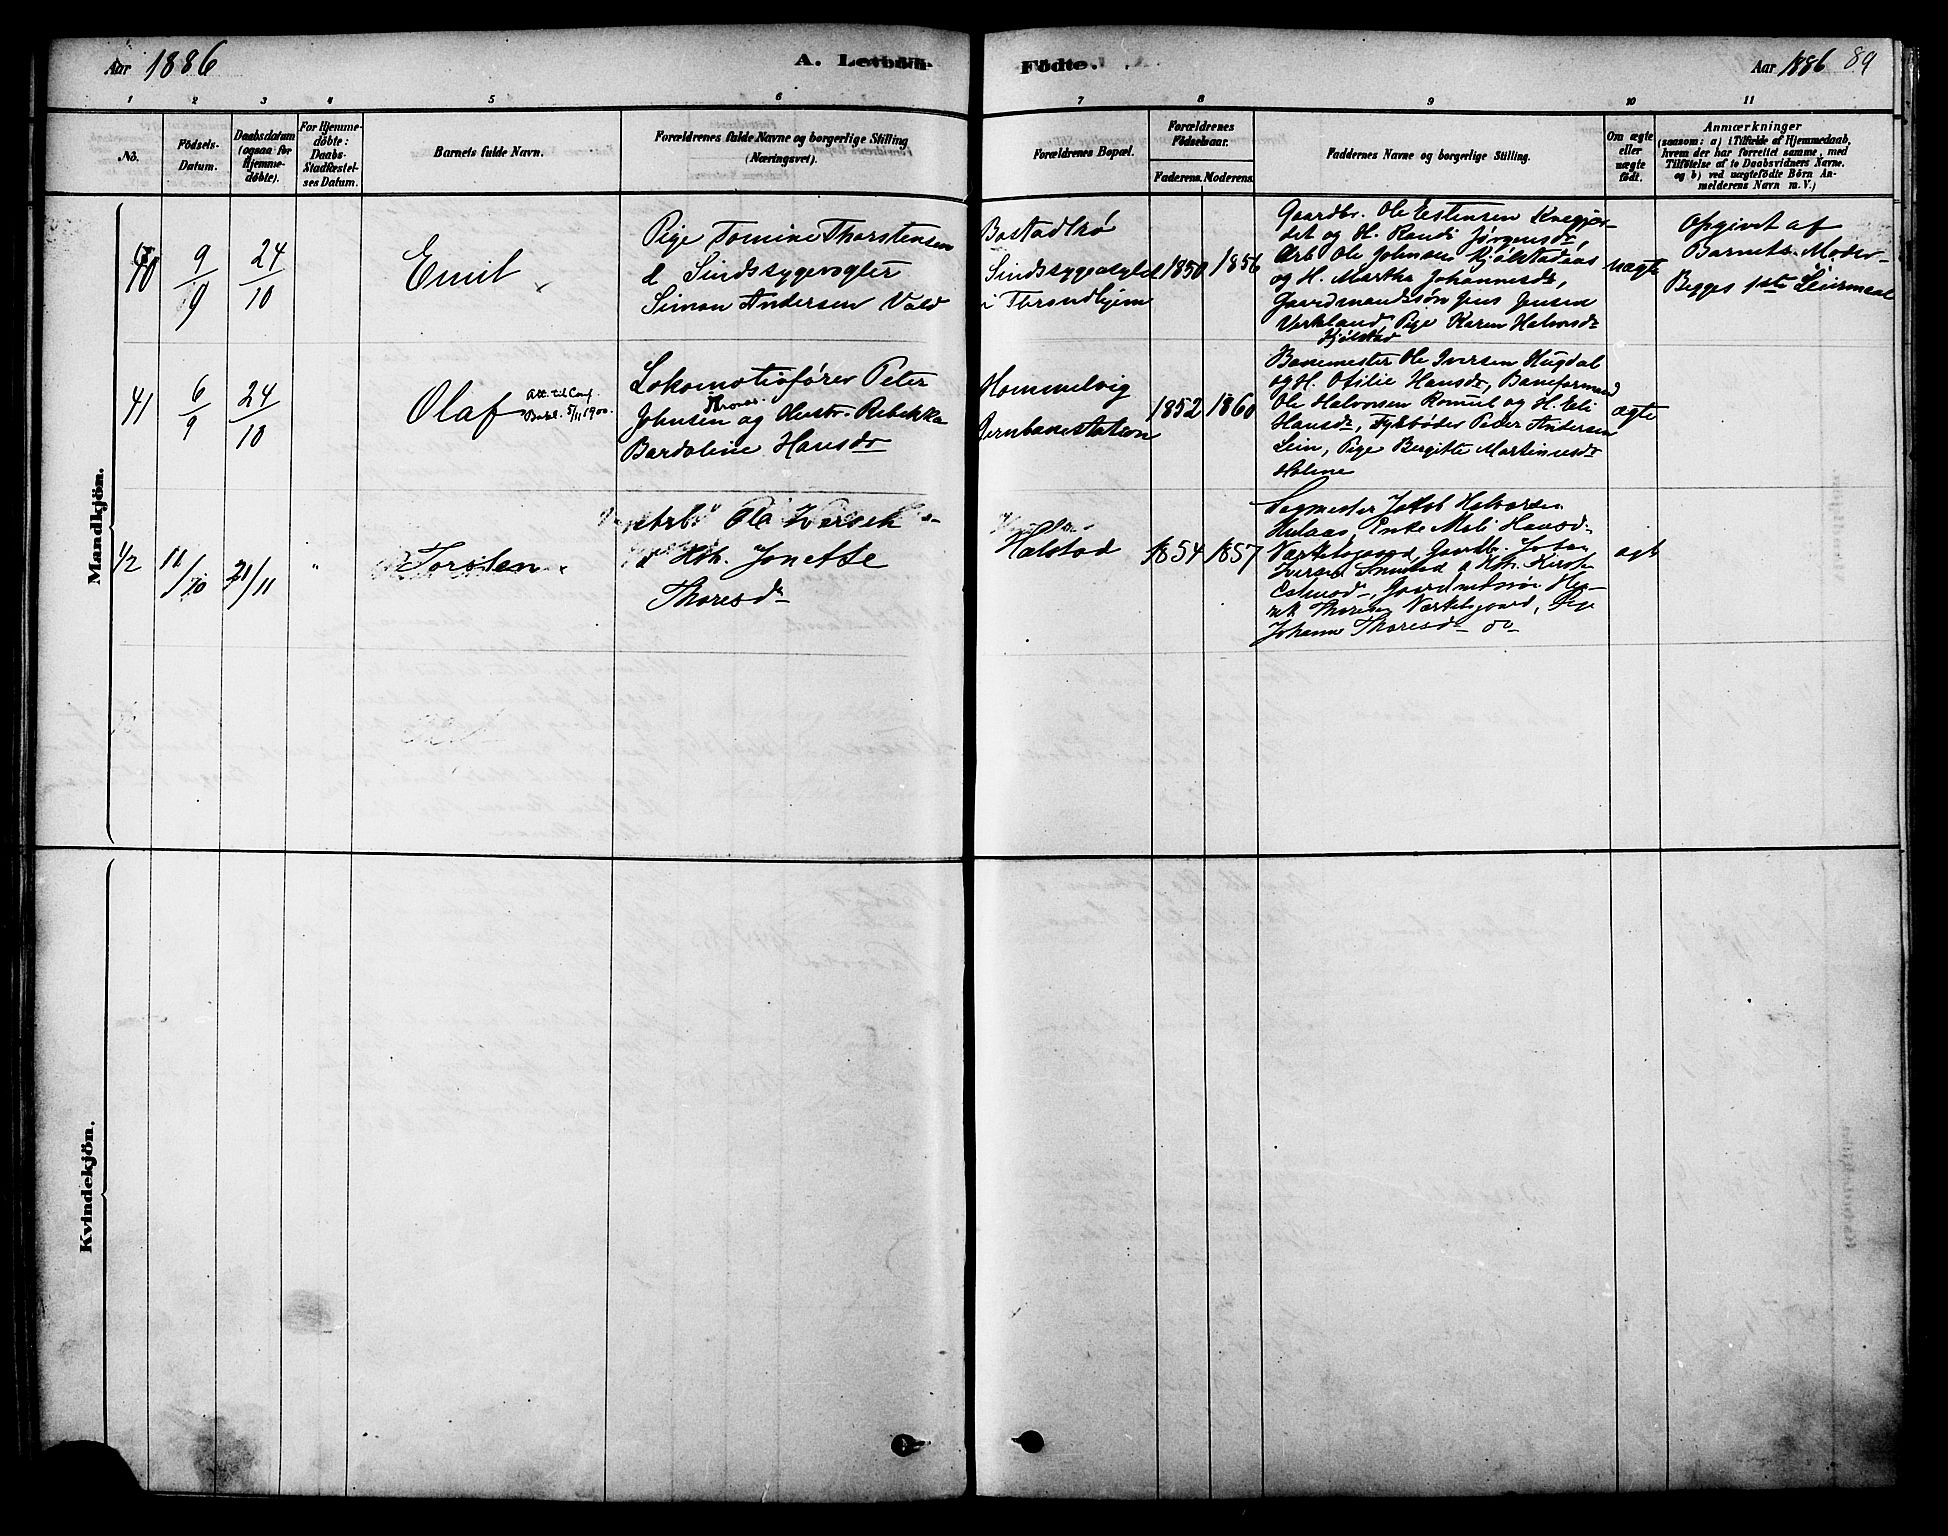 Aar 1886
A. Levende
Födte.
Aar 1886 89
1 2 3 4 5 6 7 8 9 10 11
No.
Födsels-
Datum.
Daabsdatum
(ogsaa for
Hjemme-
döbte).
For Hjemme-
döbte:
Daabs-
Stadfæstel-
ses Datum.
Barnets fulde Navn.
Forældrenes fulde Navne og borgerlige Stilling
(Næringsvei).
Forældrenes Bopæl.
Forældrenes
Födselsaar.
Faderens. Moderens.
Faddernes Navne og borgerlige Stilling.
Om ægte
eller
uægte
födt.
Anmærkninger
(saasom: a) i Tilfælde af Hjemmedaab,
hvem der har forrettet samme, med
Tilföielse af to Daabsvidners Navne,
og b) ved uægtefödte Börn An-
melderens Navn m. V.)
Mandkjön.
40
9/9
24/10
Emil
Pige Tomine Thorstensen
& Sindssygevogter
Simon Andersen Vald
Bostadtrø
Sindssygeasylet
i Throndhjem
1850 1856
Gaardbr. Ole Estensen
og H. Randi Jørgensdr,
Arb. Ole Johnsen Kjølstadaas
og H. Martha Johannesdr,
Gaardmandssøn Jens Jensen
Verkland, Pige Karen Halvorsdr
Kjølstad
uægte
Opgivet af
Barnets Moder
Begges 1ste Leiermaal
41
6/9
24/10
Olaf
Att. til Conf.
5/11 1900.
Lokomotivfører Peter
Johnsen og Hustr. Rebekka
Bardoline Hansdr
Hommelvig
Jernbanestation
1852 1860
Banemester Ole Iversen Hugdal
og H. Otilie Hansdr, Baneformand
Ole Halvorsen Romul og H. Eli
Hansdr, Fyrbøder Peder Andersen
Lein, Pige Bergitte Martinusdr
Holme
ægte
42
11/10
21/11
"
Torsten
Arb Ole Iversen
& Hh. Jonette
Thoresdr
Halstad
1854 1857
Sagmester Jakob Halvorsen
Enke Mali Hansd.
Værketsgaard, Gaardbr. Johan
Iversen & Kh. Kirsti
Gaardmandssøn
Thoresen Værketsgaard, Pige
Johanne Thoresdr do
ægt
Kvindekjön.